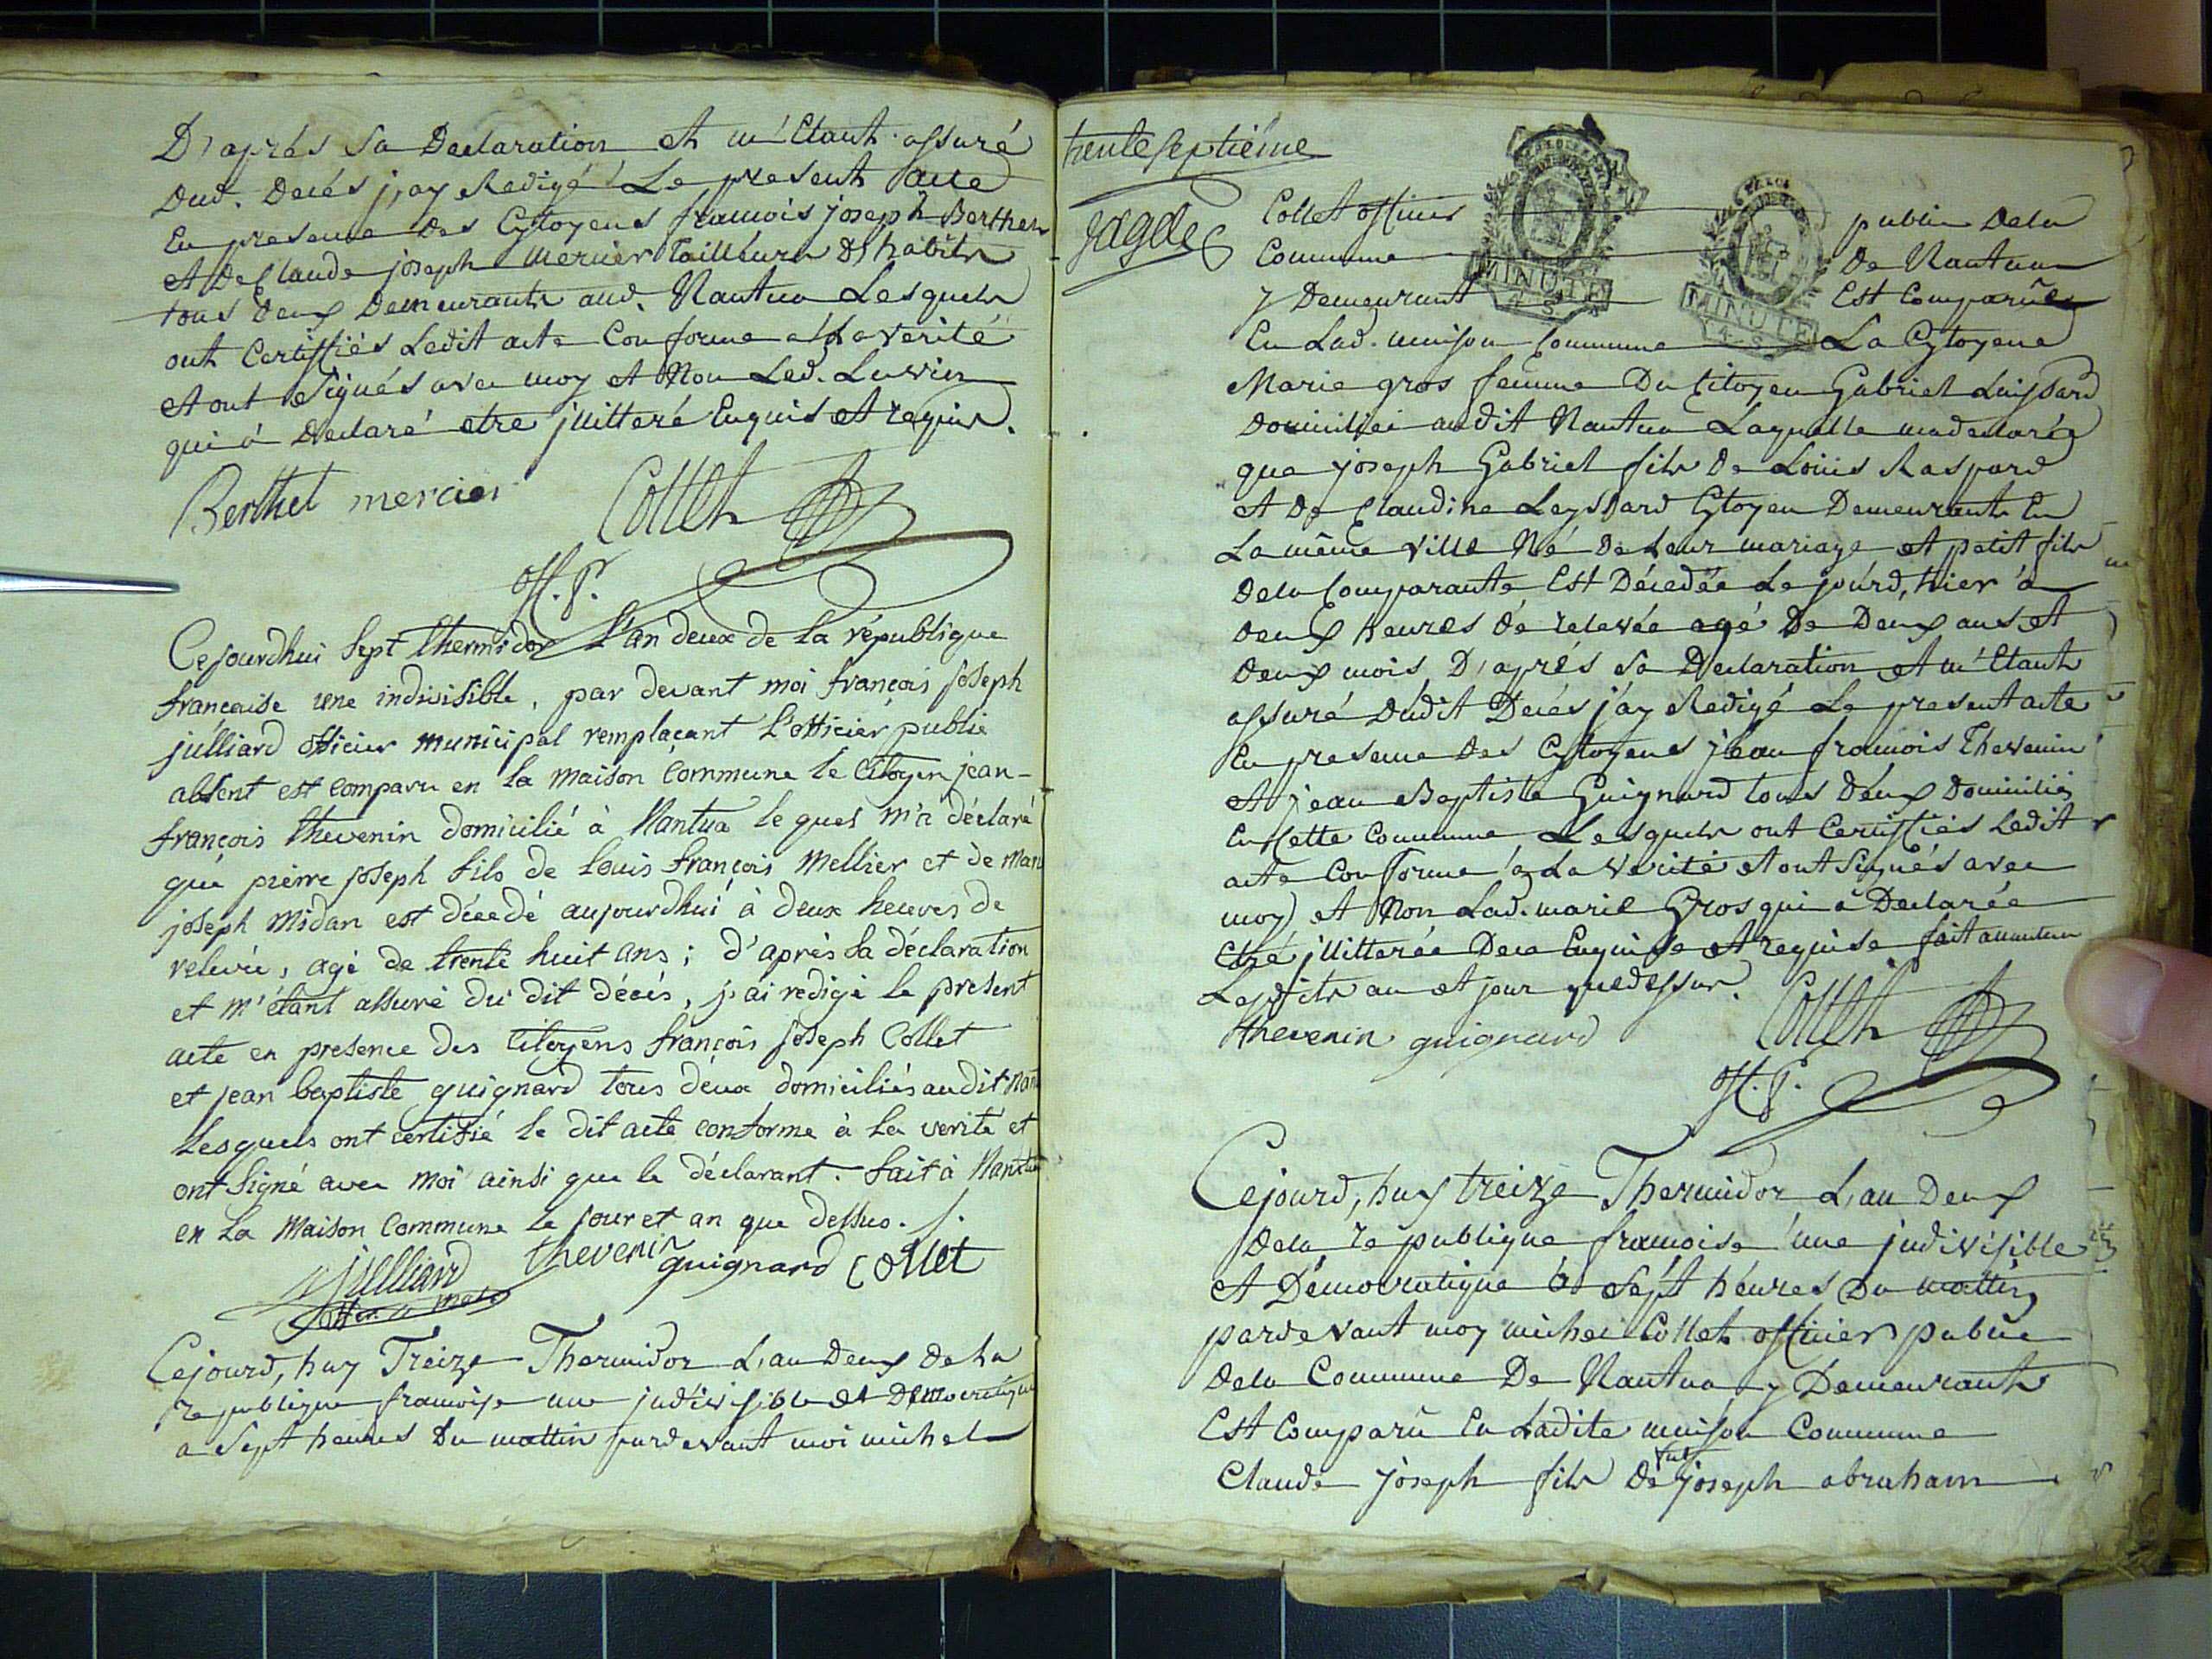 D'aprés Sa Declaration et m'Etant assuré
Dud. Decés j'ay Redigé Le present acte
En presence des Cytoyens francois joseph Berthet
et De Claude joseph Mercier Tailleurs D'habits
tous deux Demeurants aud. Nantua Lesquels
ont Certiffiés Ledit acte Conforme a La verité
et ont Signés avec moy et Non Led.
qui à Declaré etre jllitteré Enquis et requis.
Berthet mercier Collet
Off. P.
Cejourdhui Sept thermidor L'an deux de la république
francaise une indivisible, par devant moi françois joseph
julliard officier municipal remplaçant L'officier public
absent est comparu en la maison Commune le Citoyen jean-
françois thevenin domicilié à Nantua le quel m'a déclaré
que pierre joseph fils de Louis françois Mellier et de Marie
joseph Midan est décedé aujourdhui à deux heures de
relevée, agé de trente huit ans ; d'après sa déclaration
et m'étant assuré du dit décés, j'ai redigé le present
acte en presence des Citoyens françois joseph Collet
et jean baptiste guignard tous deux domiciliés audit Nant
Lesquels ont certifié le dit acte conforme à la verité et
ont Signé avec moi ainsi que le déclarant. fait à Nantua
en la Maison Commune le jour et an que dessus. /.
julliard thevenin guignard Collet
Cejourd'huy Treize Thermidor L'an Deux de La
republique francoise une jndivisible et Democratique
a Sept heures Du mattin pardevant moi michel
trente septième
jagde
Collet officier public Dela
Commune de Nantua
y Demeurant Est Comparue
En Lad. maison Commune La Cytoyene
MINUTE
4. S.
MINUTE
4. S.
Marie gros femme Du Citoyen Gabriel Laissard
Domicilié audit Nantua Laquelle ma declarée
que joseph Gabriel fils de Louis Raspard
et De Claudine Leyssard Cytoyen Demeurants En
La même ville Né de Leur mariage et petit fils
Dela Comparante Est Décedée Le jourd'hier à
deux heures de relevée agé De Deux ans et
deux mois D'aprés Sa Declaration et m'Etant
assuré dudit Decés j'ay Redigé Le present acte
En presence des Cytoyens jean francois Thevenin
et jean Baptiste Guignard tous deux Domiciliés
En Cette Commune Lesquels ont Certiffiés Ledit
acte Conforme a La verité et ont Signés avec
moy et Non Lad. marie Gros qui à Declarée
Etre jllitterée De ce Enquise et requise fait
Lesdits an et jour que dessus.
thevenin guignard Collet
Off. P.
Cejourd'huy treize Thermidor L'an Deux
Dela republique francoise une jndivisible
et Démocratique à Sept héures Du mattin
pardevant moy michel Collet officier public
Dela Commune De Nantua y Demeurant
Est Comparû En Ladite maison Commune
Claude joseph fils De feu joseph abraham